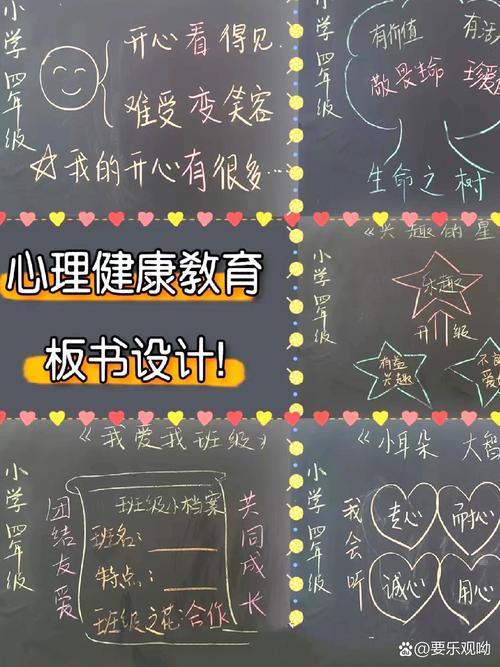 小学四年级
开心看得见
难受变笑容
☆我的开心有很多…
小学四年级
有价值
有活
敬畏生命
珍爱
生命之树
心理健康教育
板书设计!
小学四年级
《兴趣的星
乐趣
升级
有益
兴趣
小学四年级
《我爱我班级》
团结友爱
班级小档案
班名:
特点:
班级之花:合作
共同成长
小学四年级
《小耳朵 大智
我会听
专心
耐心
诚心
用心
@要乐观呦